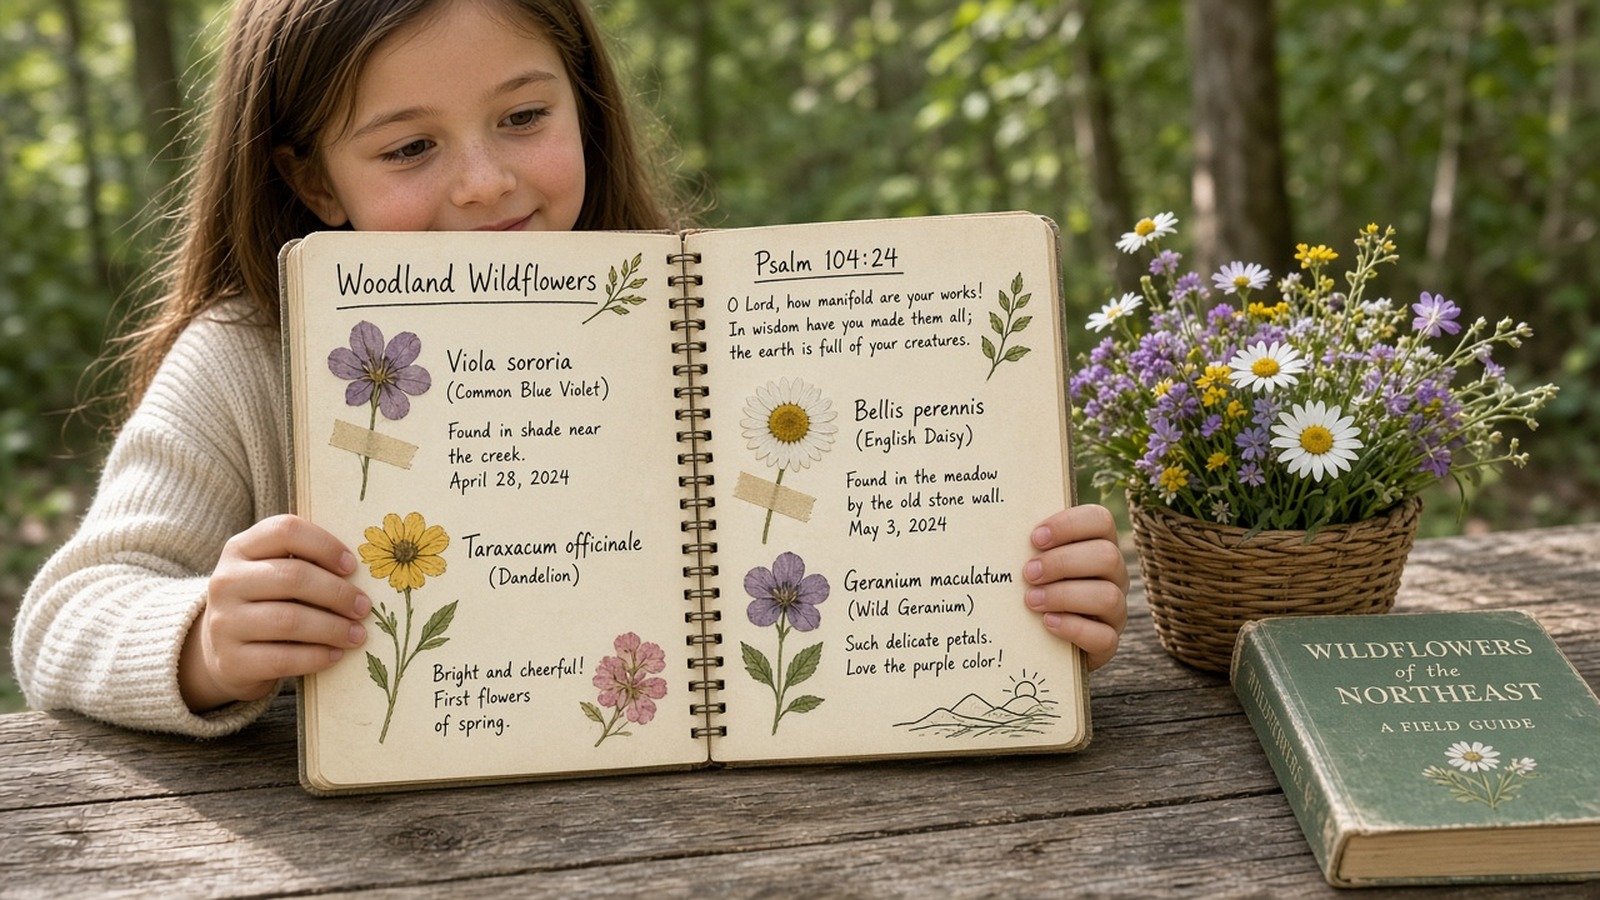 Woodland Wildflowers
Viola sororia
(Common Blue Violet)
Found in shade near
the creek.
April 28, 2024
Taraxacum officinale
(Dandelion)
Bright and cheerful!
First flowers
of spring.
Psalm 104:24
O Lord, how manifold are your works!
In wisdom have you made them all;
the earth is full of your creatures.
Bellis perennis
(English Daisy)
Found in the meadow
by the old stone wall.
May 3, 2024
Geranium maculatum
(Wild Geranium)
Such delicate petals.
Love the purple color!
WILDFLOWERS
of the
NORTHEAST
A FIELD GUIDE